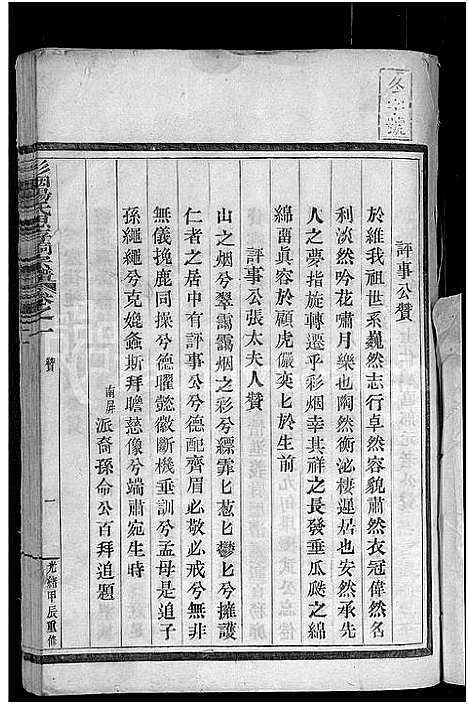 冬字號
評事公贊
於維我祖世系巍然志行卓然容貌肅然衣冠偉然名
利淡然吟花嘯月樂也陶然衡泌棲遲居也安然承先
人之夢指旋轉遷乎彩烟幸其祥之長發垂瓜瓞之綿
綿茵眞容於顧虎儼奕匕於生前
評事公張太夫人贊
山之烟兮翠靄靄烟之彩兮縹霏匕葱匕鬱匕兮擁護
仁者之居中有評事公兮德配齊眉必敬必戒兮無非
無儀挽鹿同操兮德曜懿徽斷機垂訓兮孟母是追子
孫繩繩兮克媲螽斯拜瞻慈像兮端肅宛生時
南屏派裔孫命公百拜追題
贊
一
光緒甲辰重修